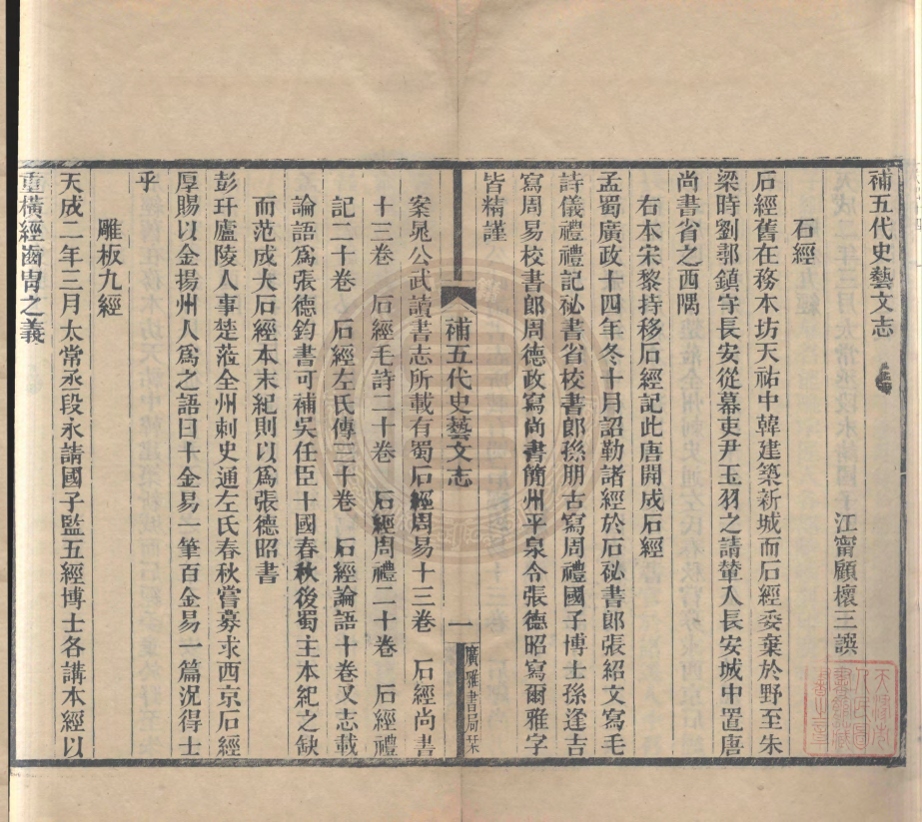 補五代史藝文志
江甯顧櫰三譔
石經
石經舊在務本坊天祐中韓建築新城而石經委棄於野至朱
梁時劉鄩鎮守長安從幕吏尹玉羽之請輦入長安城中置唐
尚書省之西隅
右本宋黎持移石經記此唐開成石經
孟蜀廣政十四年冬十月詔勒諸經於石祕書郎張紹文寫毛
詩儀禮禮記祕書省校書郎孫朋古寫周禮國子博士孫逢吉
寫周易校書郎周德政寫尚書簡州平泉令張德昭寫爾雅字
皆精謹
補五代史藝文志
一
廣雅書局栞
案晁公武讀書志所載有蜀石經周易十三卷 石經尚書
十三卷 石經毛詩二十卷 石經周禮二十卷 石經禮
記二十卷 石經左氏傳三十卷 石經論語十卷又志載
論語爲張德鈞書可補吳任臣十國春秋後蜀主本紀之缺
而范成大石經本末紀則以爲張德昭書
彭玕廬陵人事楚涖全州刺史通左氏春秋嘗募求西京石經
厚賜以金揚州人爲之語曰十金易一筆百金易一篇況得士
乎
雕板九經
天成二年三月太常丞段永請國子監五經博士各講本經以
重橫經齒冑之義